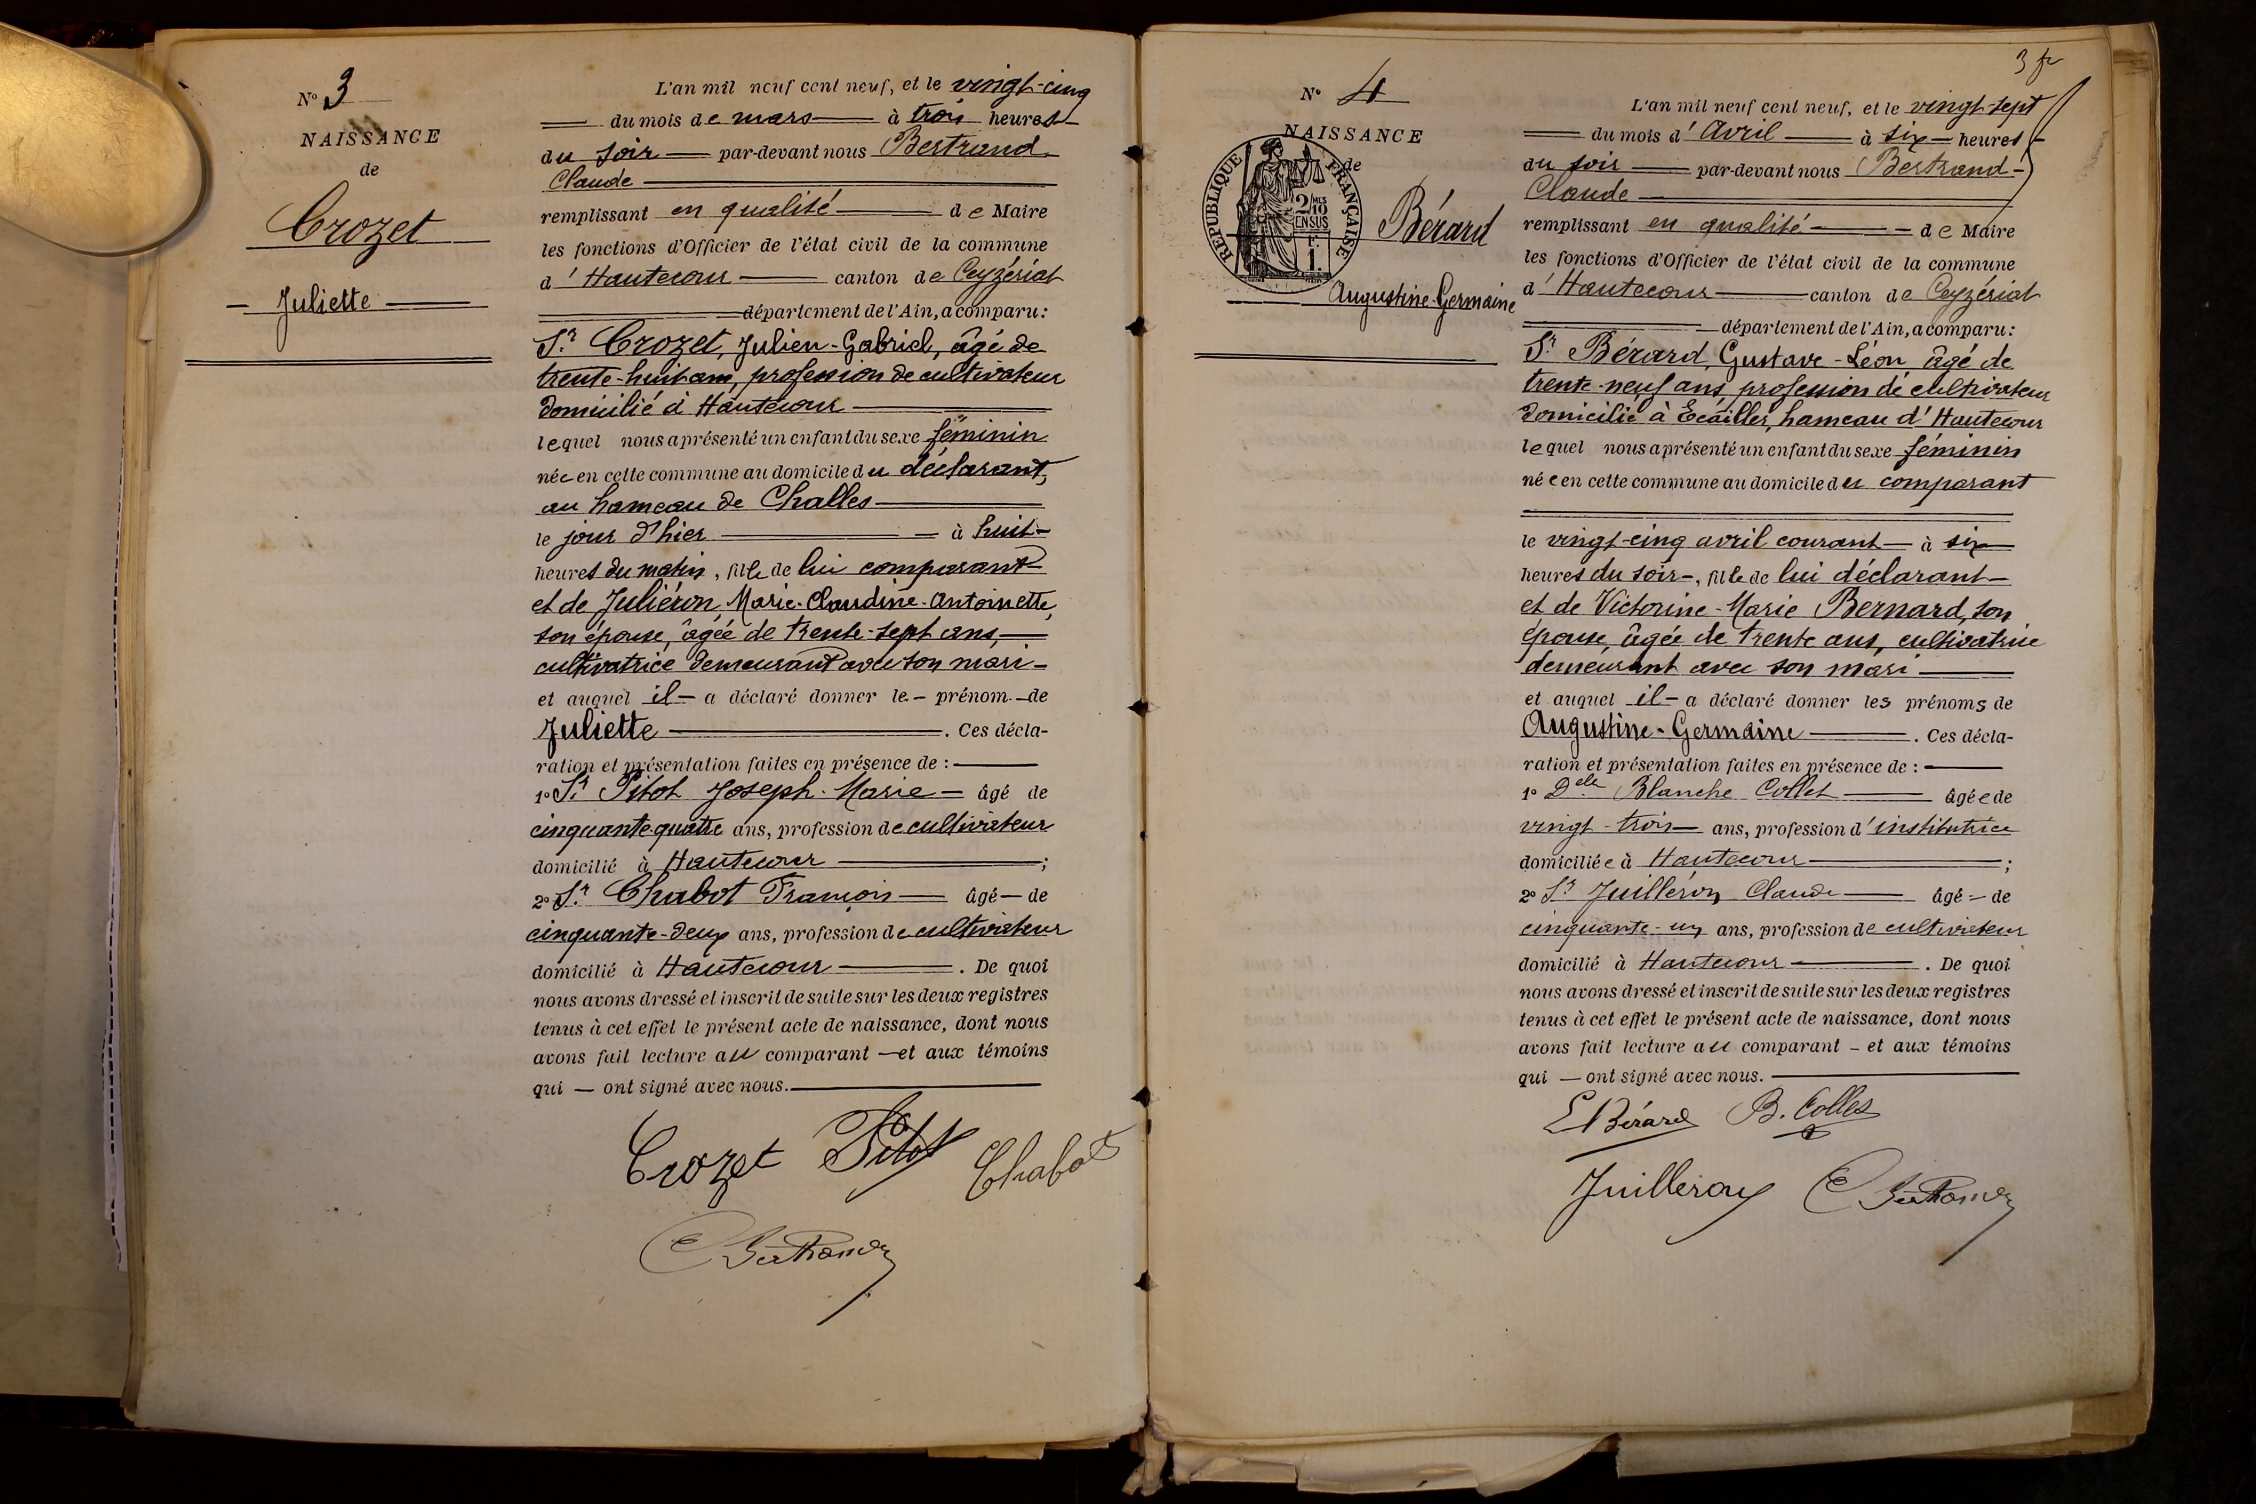 N° 3
NAISSANCE
de
Crozet
Juliette
L'an mil neuf cent neuf, et le vingt-cinq
du mois de mars à trois heures
du soir par-devant nous Bertrand
Claude
remplissant en qualité de Maire
les fonctions d'Officier de l'état civil de la commune
d'Hautecour canton de Ceyzériat
département de l'Ain, a comparu :
Sr Crozet, Julien-Gabriel, âgé de
trente-huit ans, profession de cultivateur
domicilié à Hautecour
lequel nous a présenté un enfant du sexe féminin
née en cette commune au domicile du déclarant,
au hameau de Challes
le jour d'hier à huit
heures du matin, fille de lui comparant
et de Juliéron Marie-Claudine-Antoinette,
son épouse, âgée de trente-sept ans,
cultivatrice demeurant avec son mari
et auquel il a déclaré donner le prénom de
Juliette . Ces décla-
ration et présentation faites en présence de :
1° Sr Pitot Joseph-Marie âgé de
cinquante quatre ans, profession de cultivateur
domicilié à Hautecour ;
2° Sr Chabot François âgé de
cinquante-deux ans, profession de cultivateur
domicilié à Hautecour . De quoi
nous avons dressé et inscrit de suite sur les deux registres
tenus à cet effet le présent acte de naissance, dont nous
avons fait lecture au comparant et aux témoins
qui ont signé avec nous.
Crozet Pitot Chabot
C Bertrand
3 fr
N° 4
NAISSANCE
de
REPUBLIQUE FRANÇAISE
2/10 MES
EN SUS
F.
1.
Bérard
Augustine-Germaine
L'an mil neuf cent neuf, et le vingt-sept
du mois d'Avril à six heures
du soir par-devant nous Bertrand
Claude
remplissant en qualité de Maire
les fonctions d'Officier de l'état civil de la commune
d'Hautecour canton de Ceyzériat
département de l'Ain, a comparu :
Sr Bérard, Gustave-Léon, âgé de
trente-neuf ans, profession de cultivateur
domicilié à Ecailles, hameau d'Hautecour
lequel nous a présenté un enfant du sexe féminin
née en cette commune au domicile du comparant
le vingt-cinq avril courant à six
heures du soir, fille de lui déclarant
et de Victorine-Marie Bernard, son
épouse, âgée de trente ans, cultivatrice
demeurant avec son mari
et auquel il a déclaré donner les prénoms de
Augustine-Germaine . Ces décla-
ration et présentation faites en présence de :
1° Delle Blanche Collet âgée de
vingt-trois ans, profession d'institutrice
domiciliée à Hautecour ;
2° Sr Juilléron Claude âgé de
cinquante-un ans, profession de cultivateur
domicilié à Hautecour . De quoi
nous avons dressé et inscrit de suite sur les deux registres
tenus à cet effet le présent acte de naissance, dont nous
avons fait lecture au comparant et aux témoins
qui ont signé avec nous.
Bérard B. Collet
Juilleron C Bertrand